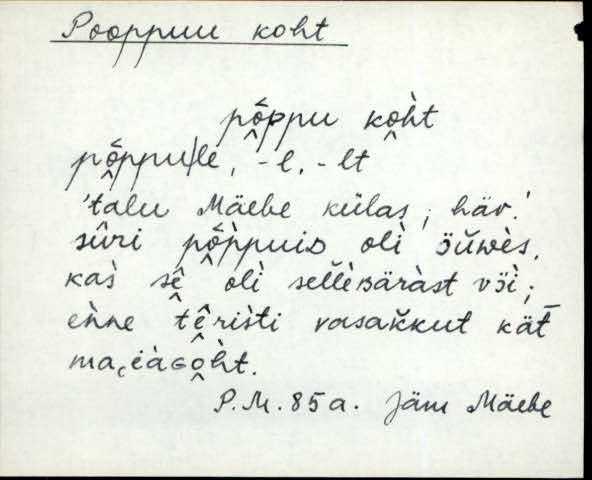 Pooppuu koht
pô̭ppu kô̭h̀t
pô̭ppu|le, -l, -lt
'talu Mäebe külas; häv.'
sûri pô̭p̀puiᴅ olì ö̆ŭwès,
kas̀ sḙ̂ olì sellèʙäràst vö̀i;
eǹne tḙ̂ris̀ti vasak̆kut kät̄
P.M. 85a. Jäm Mäebe